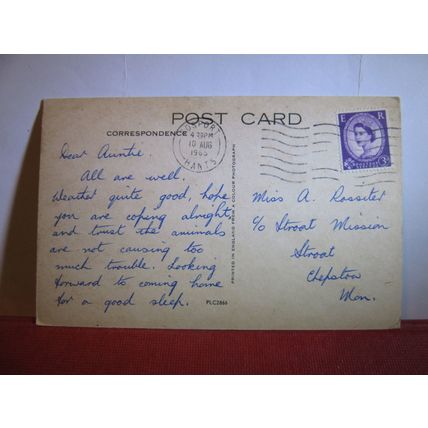 POST CARD
CORRESPONDENCE
GOSPORT
4 30PM
10 AUG
1965
HANTS
E R
3D
Dear Auntie.
All are well.
Weather quite good, hope
you are coping alright,
and trust the animals
are not causing too
much trouble. Looking
forward to coming home
for a good sleep.
PLC2866
PRINTED IN ENGLAND FROM A COLOUR PHOTOGRAPH
Miss A. Rossiter
c/o Stroat Mission
Stroat
Chepstow
Mon.